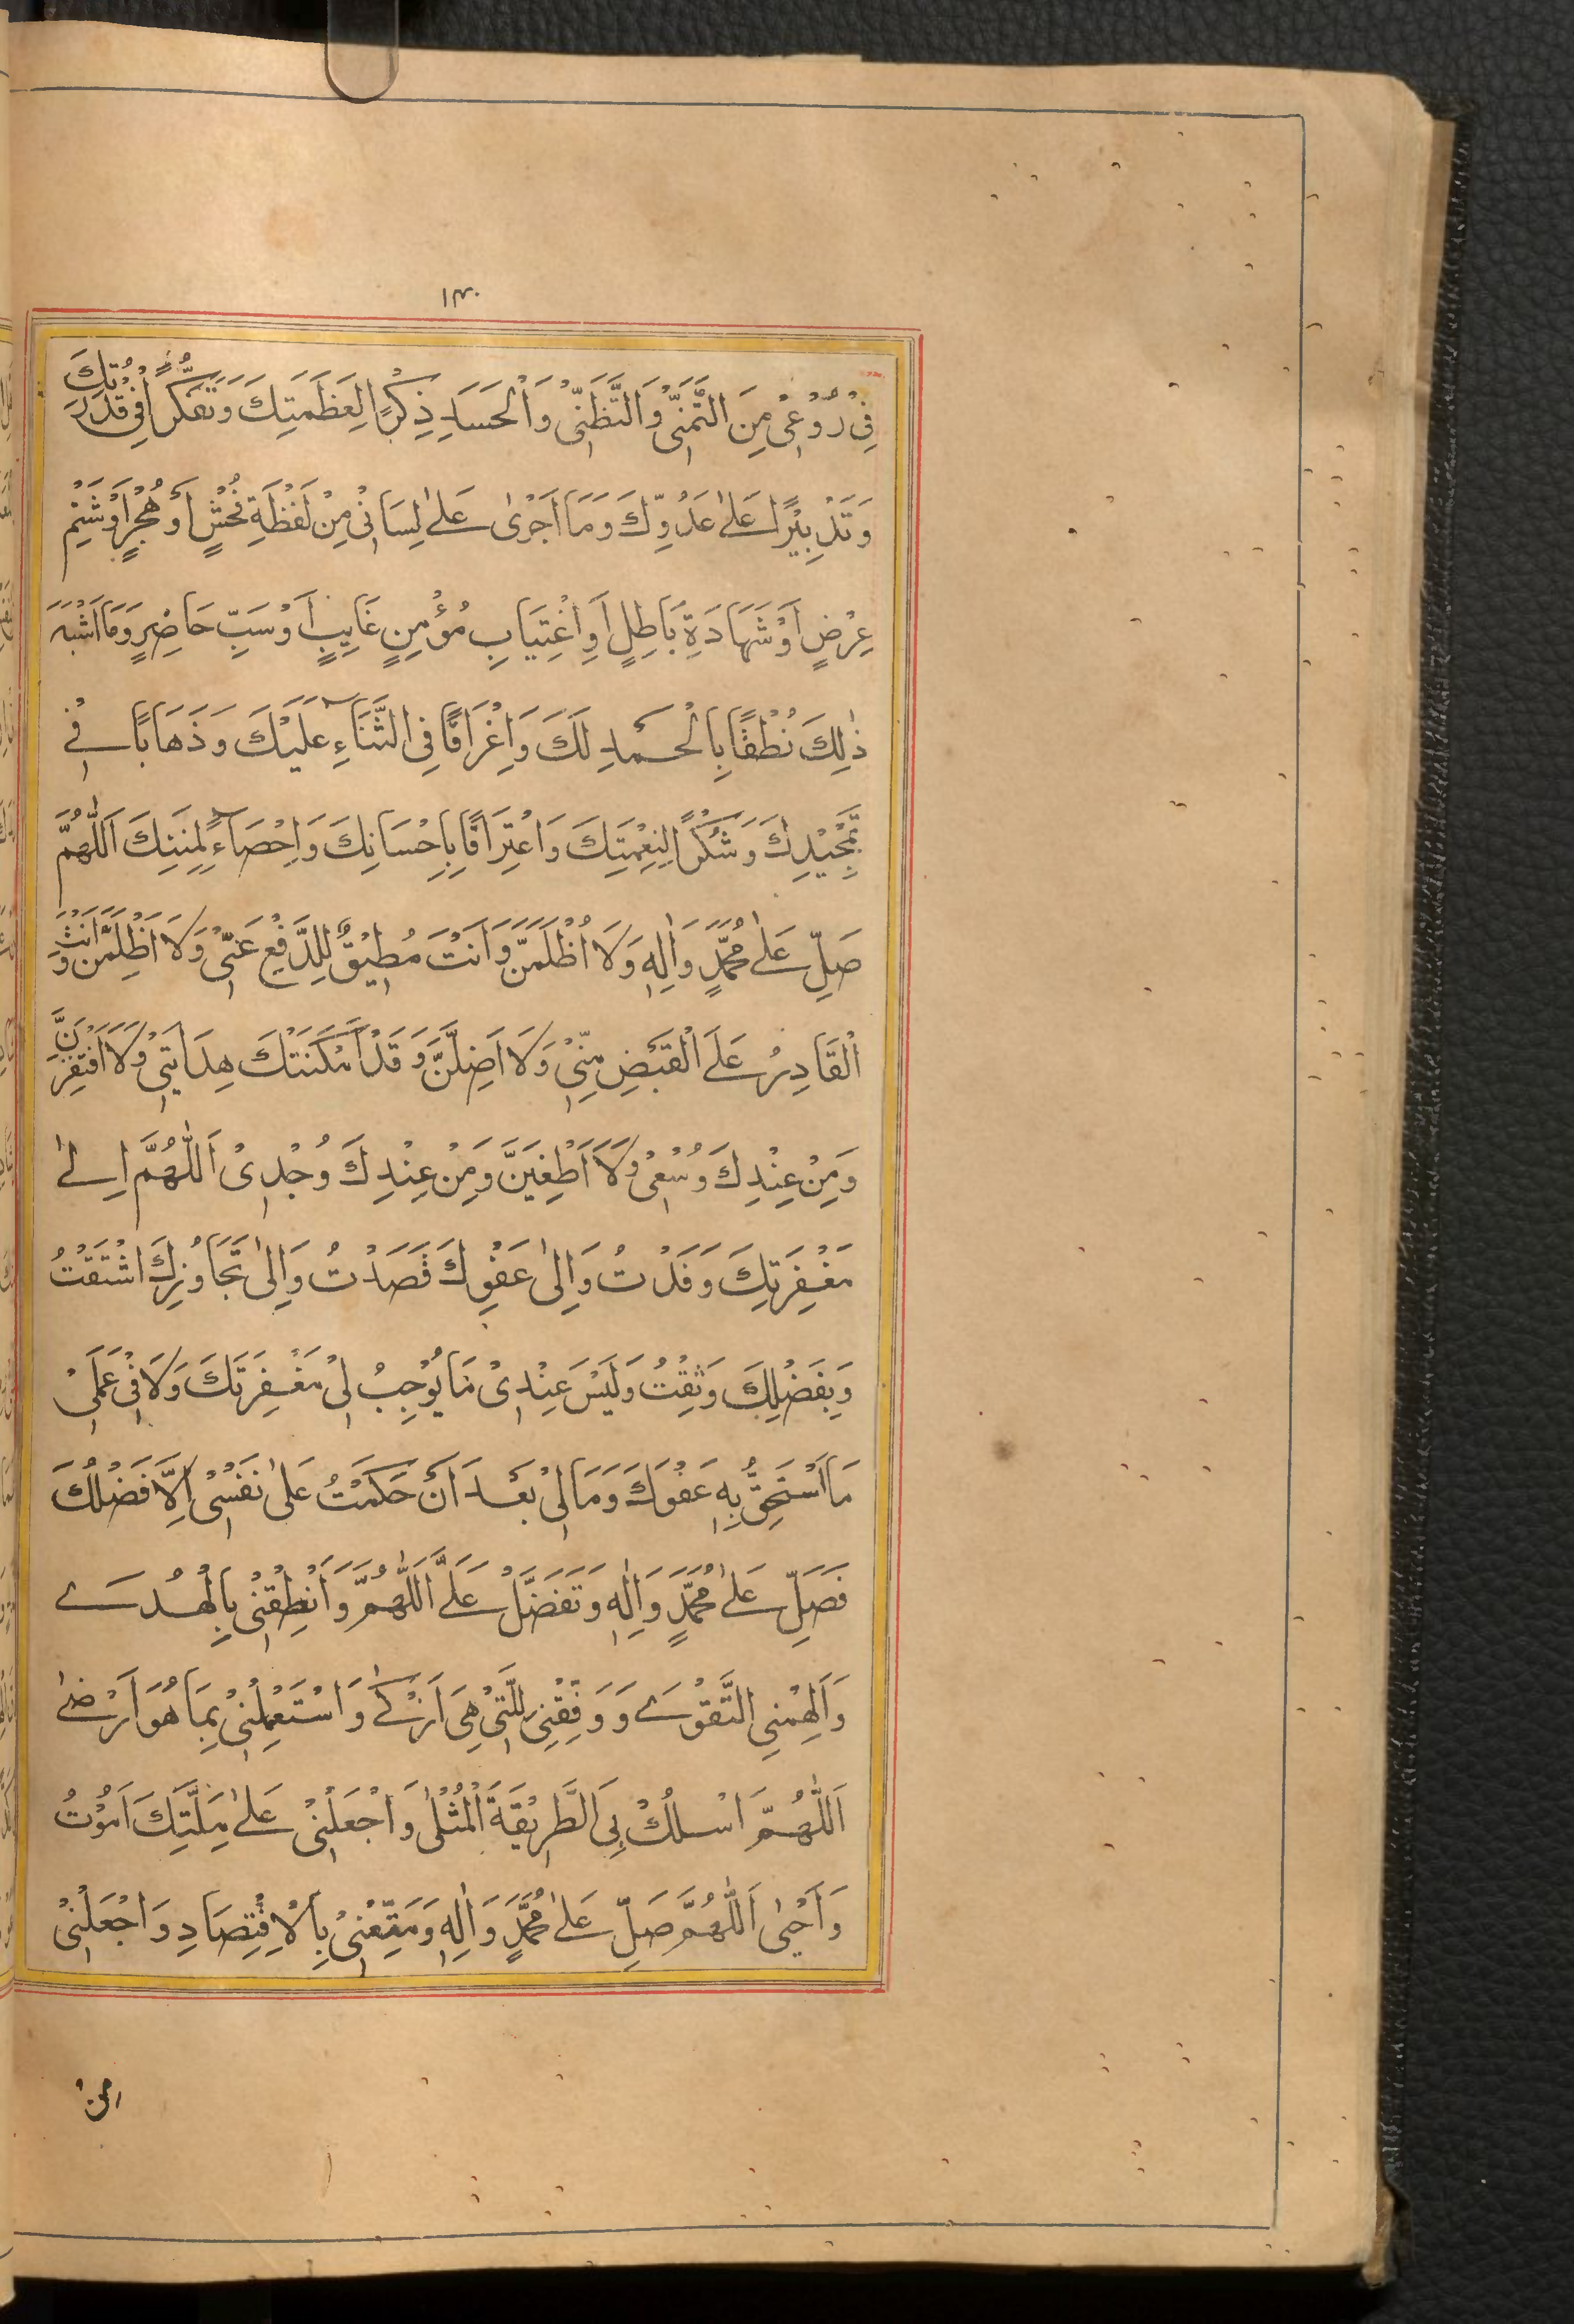 ١٣٠
فِيْ رُوْعِيْ مِنَ التَّمَنِّيْ وَالتَّظَنِّيْ وَالْحَسَدِ ذِكْرًا لِعَظَمَتِكَ وَتَفَكُّرًا فِيْ قُدْرَتِكَ
وَتَدْبِيْرًا عَلٰى عَدُوِّكَ وَمَا اَجْرٰى عَلٰى لِسَانِيْ مِنْ لَفْظَةِ فُحْشٍ اَوْ هُجْرٍ اَوْ شَتْمِ
عِرْضٍ اَوْ شَهَادَةِ بَاطِلٍ اَوِ اغْتِيَابِ مُؤْمِنٍ غَايِبٍ اَوْ سَبِّ حَاضِرٍ وَمَا اَشْبَهَ
ذٰلِكَ نُطْقًا بِالْحَمْدِ لَكَ وَاِغْرَاقًا فِي الثَّنَآءِ عَلَيْكَ وَذَهَابًا فِيْ
تَمْجِيْدِكَ وَشُكْرًا لِنِعْمَتِكَ وَاعْتِرَافًا بِاِحْسَانِكَ وَاِحْصَآءً لِمِنَنِكَ اَللّٰهُمَّ
صَلِّ عَلٰى مُحَمَّدٍ وَاٰلِهٖ وَلَا اُظْلَمَنَّ وَاَنْتَ مُطِيْقٌ لِلدَّفْعِ عَنِّيْ وَلَا اَظْلِمَنَّ وَاَنْتَ
الْقَادِرُ عَلَى الْقَبْضِ مِنِّيْ وَلَا اَضِلَّنَّ وَقَدْ اَمْكَنَتْكَ هِدَايَتِيْ وَلَا اَفْتَقِرَنَّ
وَمِنْ عِنْدِكَ وُسْعِيْ وَلَا اَطْغَيَنَّ وَمِنْ عِنْدِكَ وُجْدِيْ اَللّٰهُمَّ اِلٰى
مَغْفِرَتِكَ وَفَدْتُ وَاِلٰى عَفْوِكَ قَصَدْتُ وَاِلٰى تَجَاوُزِكَ اشْتَقْتُ
وَبِفَضْلِكَ وَثِقْتُ وَلَيْسَ عِنْدِيْ مَا يُوْجِبُ لِيْ مَغْفِرَتَكَ وَلَا فِيْ عَمَلِيْ
مَا اَسْتَحِقُّ بِهٖ عَفْوَكَ وَمَا لِيْ بَعْدَ اَنْ حَكَمْتُ عَلٰى نَفْسِيْ اِلَّا فَضْلُكَ
فَصَلِّ عَلٰى مُحَمَّدٍ وَاٰلِهٖ وَتَفَضَّلْ عَلَيَّ اَللّٰهُمَّ وَاَنْطِقْنِيْ بِالْهُدٰى
وَاَلْهِمْنِي التَّقْوٰى وَوَفِّقْنِيْ لِلَّتِيْ هِيَ اَزْكٰى وَاسْتَعْمِلْنِيْ بِمَا هُوَ اَرْضٰى
اَللّٰهُمَّ اسْلُكْ بِيَ الطَّرِيْقَةَ الْمُثْلٰى وَاجْعَلْنِيْ عَلٰى مِلَّتِكَ اَمُوْتُ
وَاَحْيٰى اَللّٰهُمَّ صَلِّ عَلٰى مُحَمَّدٍ وَاٰلِهٖ وَمَتِّعْنِيْ بِالْاِقْتِصَادِ وَاجْعَلْنِيْ
من